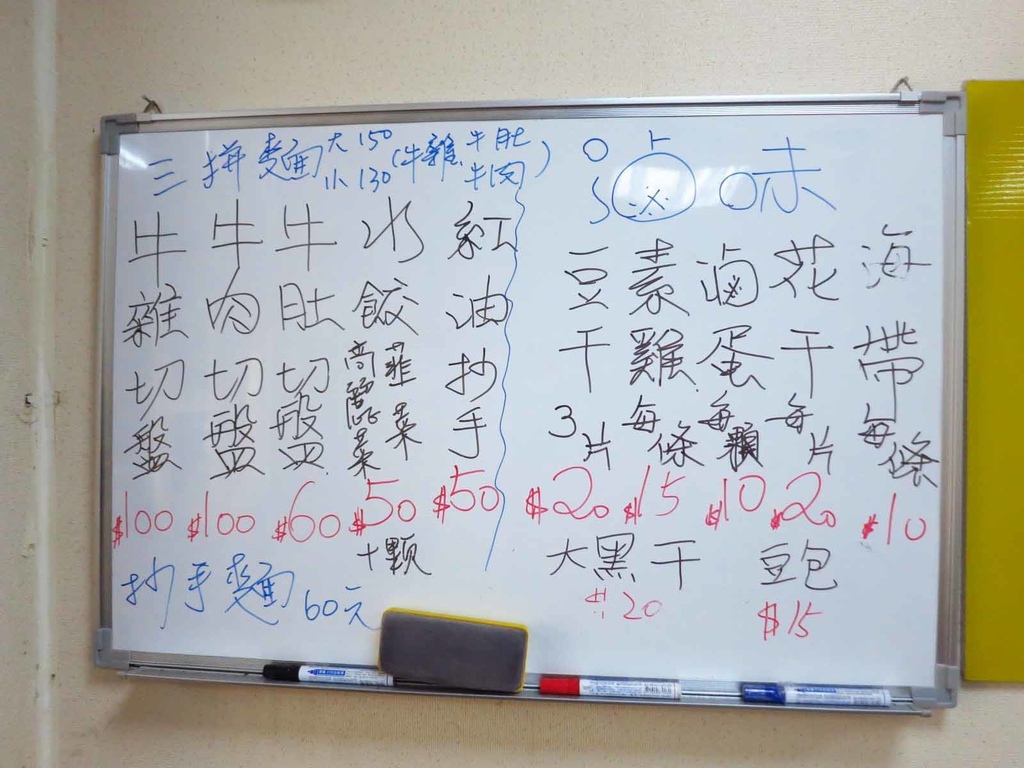 三拼麵 大150 小130 (牛雜、牛肚 牛肉)
牛雜切盤 $100
牛肉切盤 $100
牛肚切盤 $60
水餃 高麗菜 韮菜 $50 十顆
紅油抄手 $50
抄手麵 60元
滷味
豆干 3片 $20
素雞 每條 $15
滷蛋 每顆 $10
花干 每片 $20
海帶 每條 $10
大黑干 $20
豆包 $15